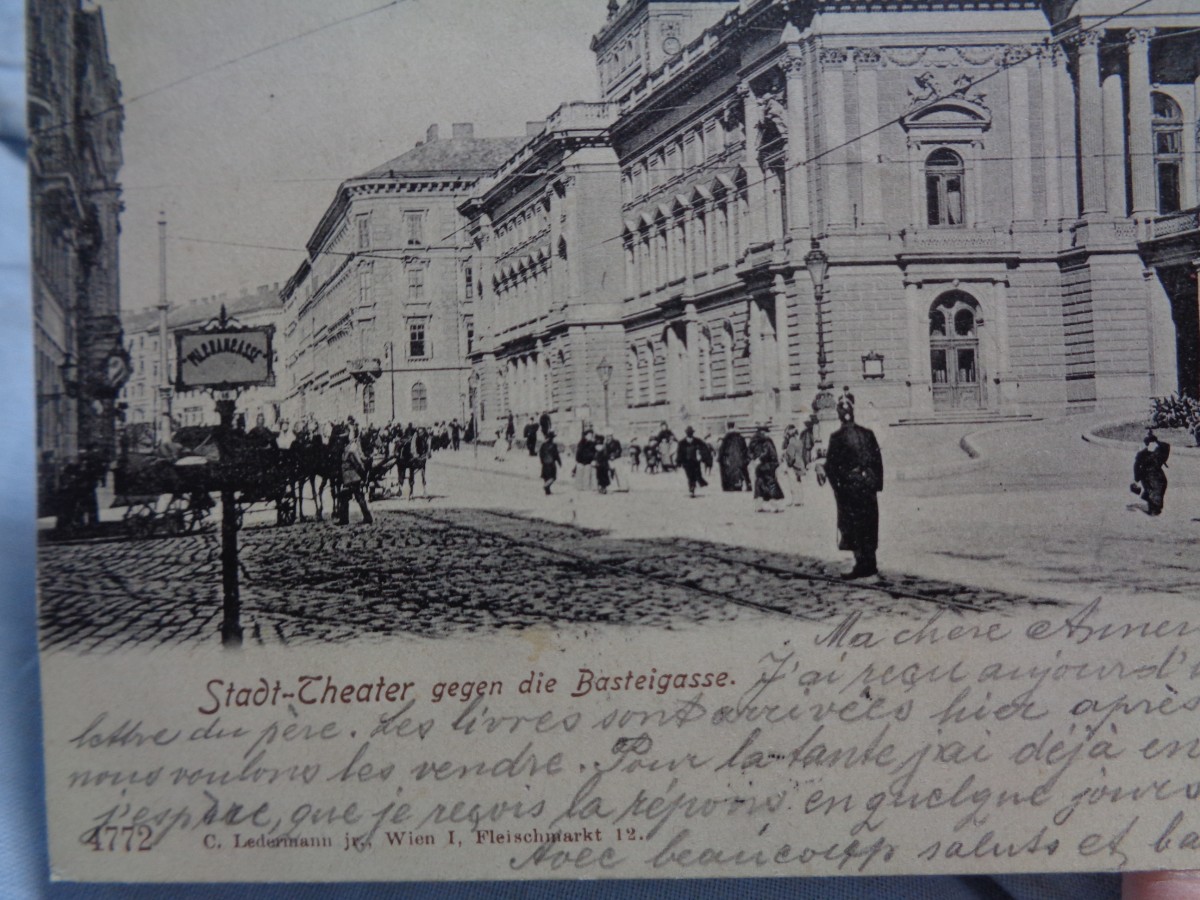 Stadt-Theater gegen die Basteigasse.
Ma chère
J'ai reçu aujourd'
lettre du père. Les livres sont arrivées hier après
nous voulons les vendre. Pour la tante j'ai déjà en
j'espère, que je reçois la répons en quelque jours
Avec beaucoup saluts et ba
4772
C. Ledermann jr., Wien I, Fleischmarkt 12.